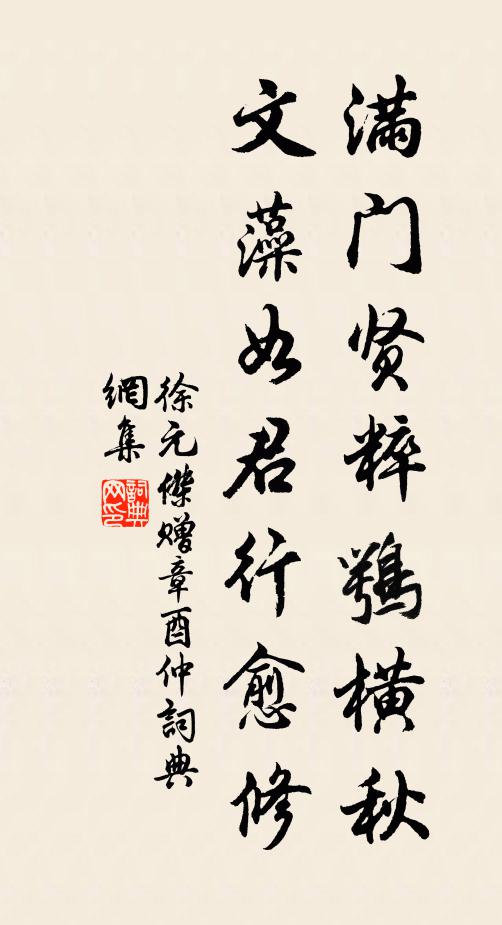 满门贤粹鶚横秋
文藻如君行愈修
徐元傑赠章酉仲詞典
網集
詞典网印